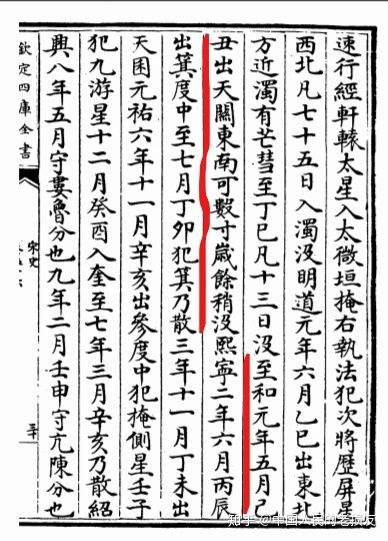 速行經軒轅太星入太微垣掩右執法犯次將歷屏星
西北凡七十五日入濁没明道元年六月乙巳出東北
方近濁有芒彗至丁巳凡十三日没至和元年五月己
丑出天關東南可數寸歲餘稍没熙寧二年六月丙辰
出箕度中至七月丁卯犯箕乃散三年十一月丁未出
天囷元祐六年十一月辛亥出參度中犯掩側星壬子
犯九游星十二月癸酉入奎至七年三月辛亥乃散紹
興八年五月守婁魯分也九年二月壬申守亢陳分也
欽定四庫全書
宋史
知乎 @中国人民的老朋友